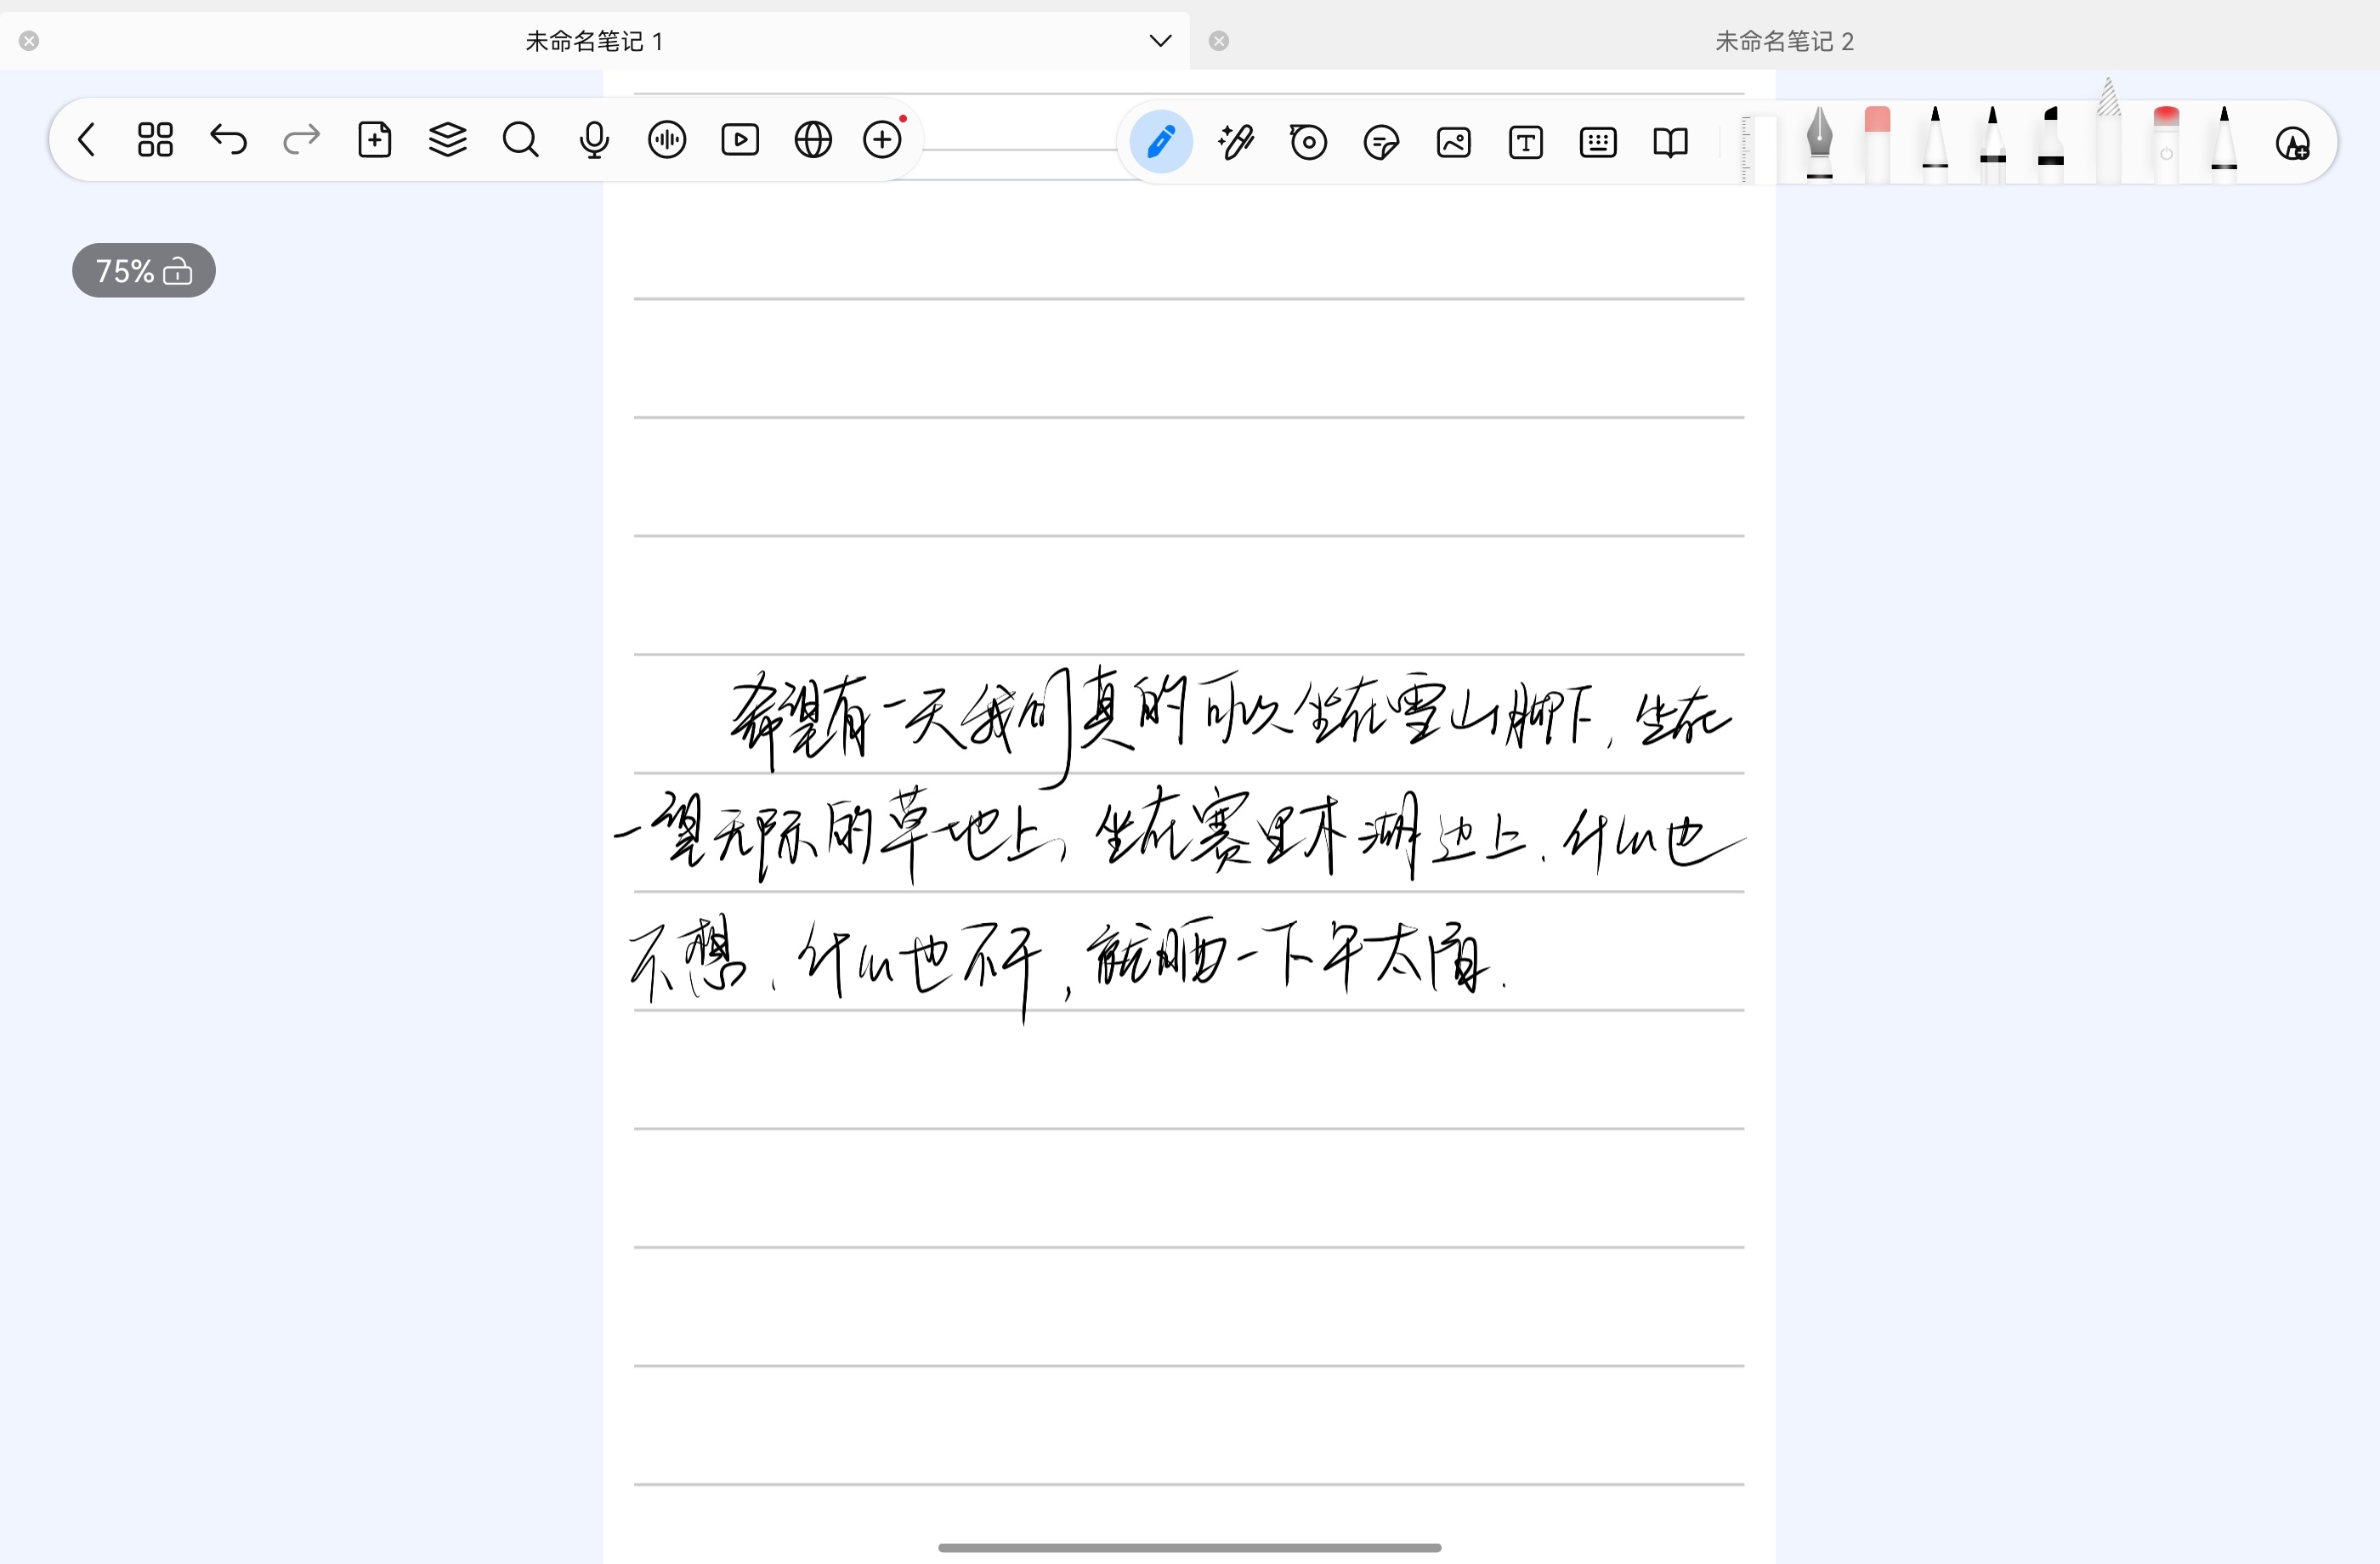 未命名笔记 1
未命名笔记 2
75%
希望有一天我们真的可以坐在雪山脚下,坐在
一望无际的草地上,坐在赛里木湖边上,什么也
不想,什么也不干,就晒一下午太阳.